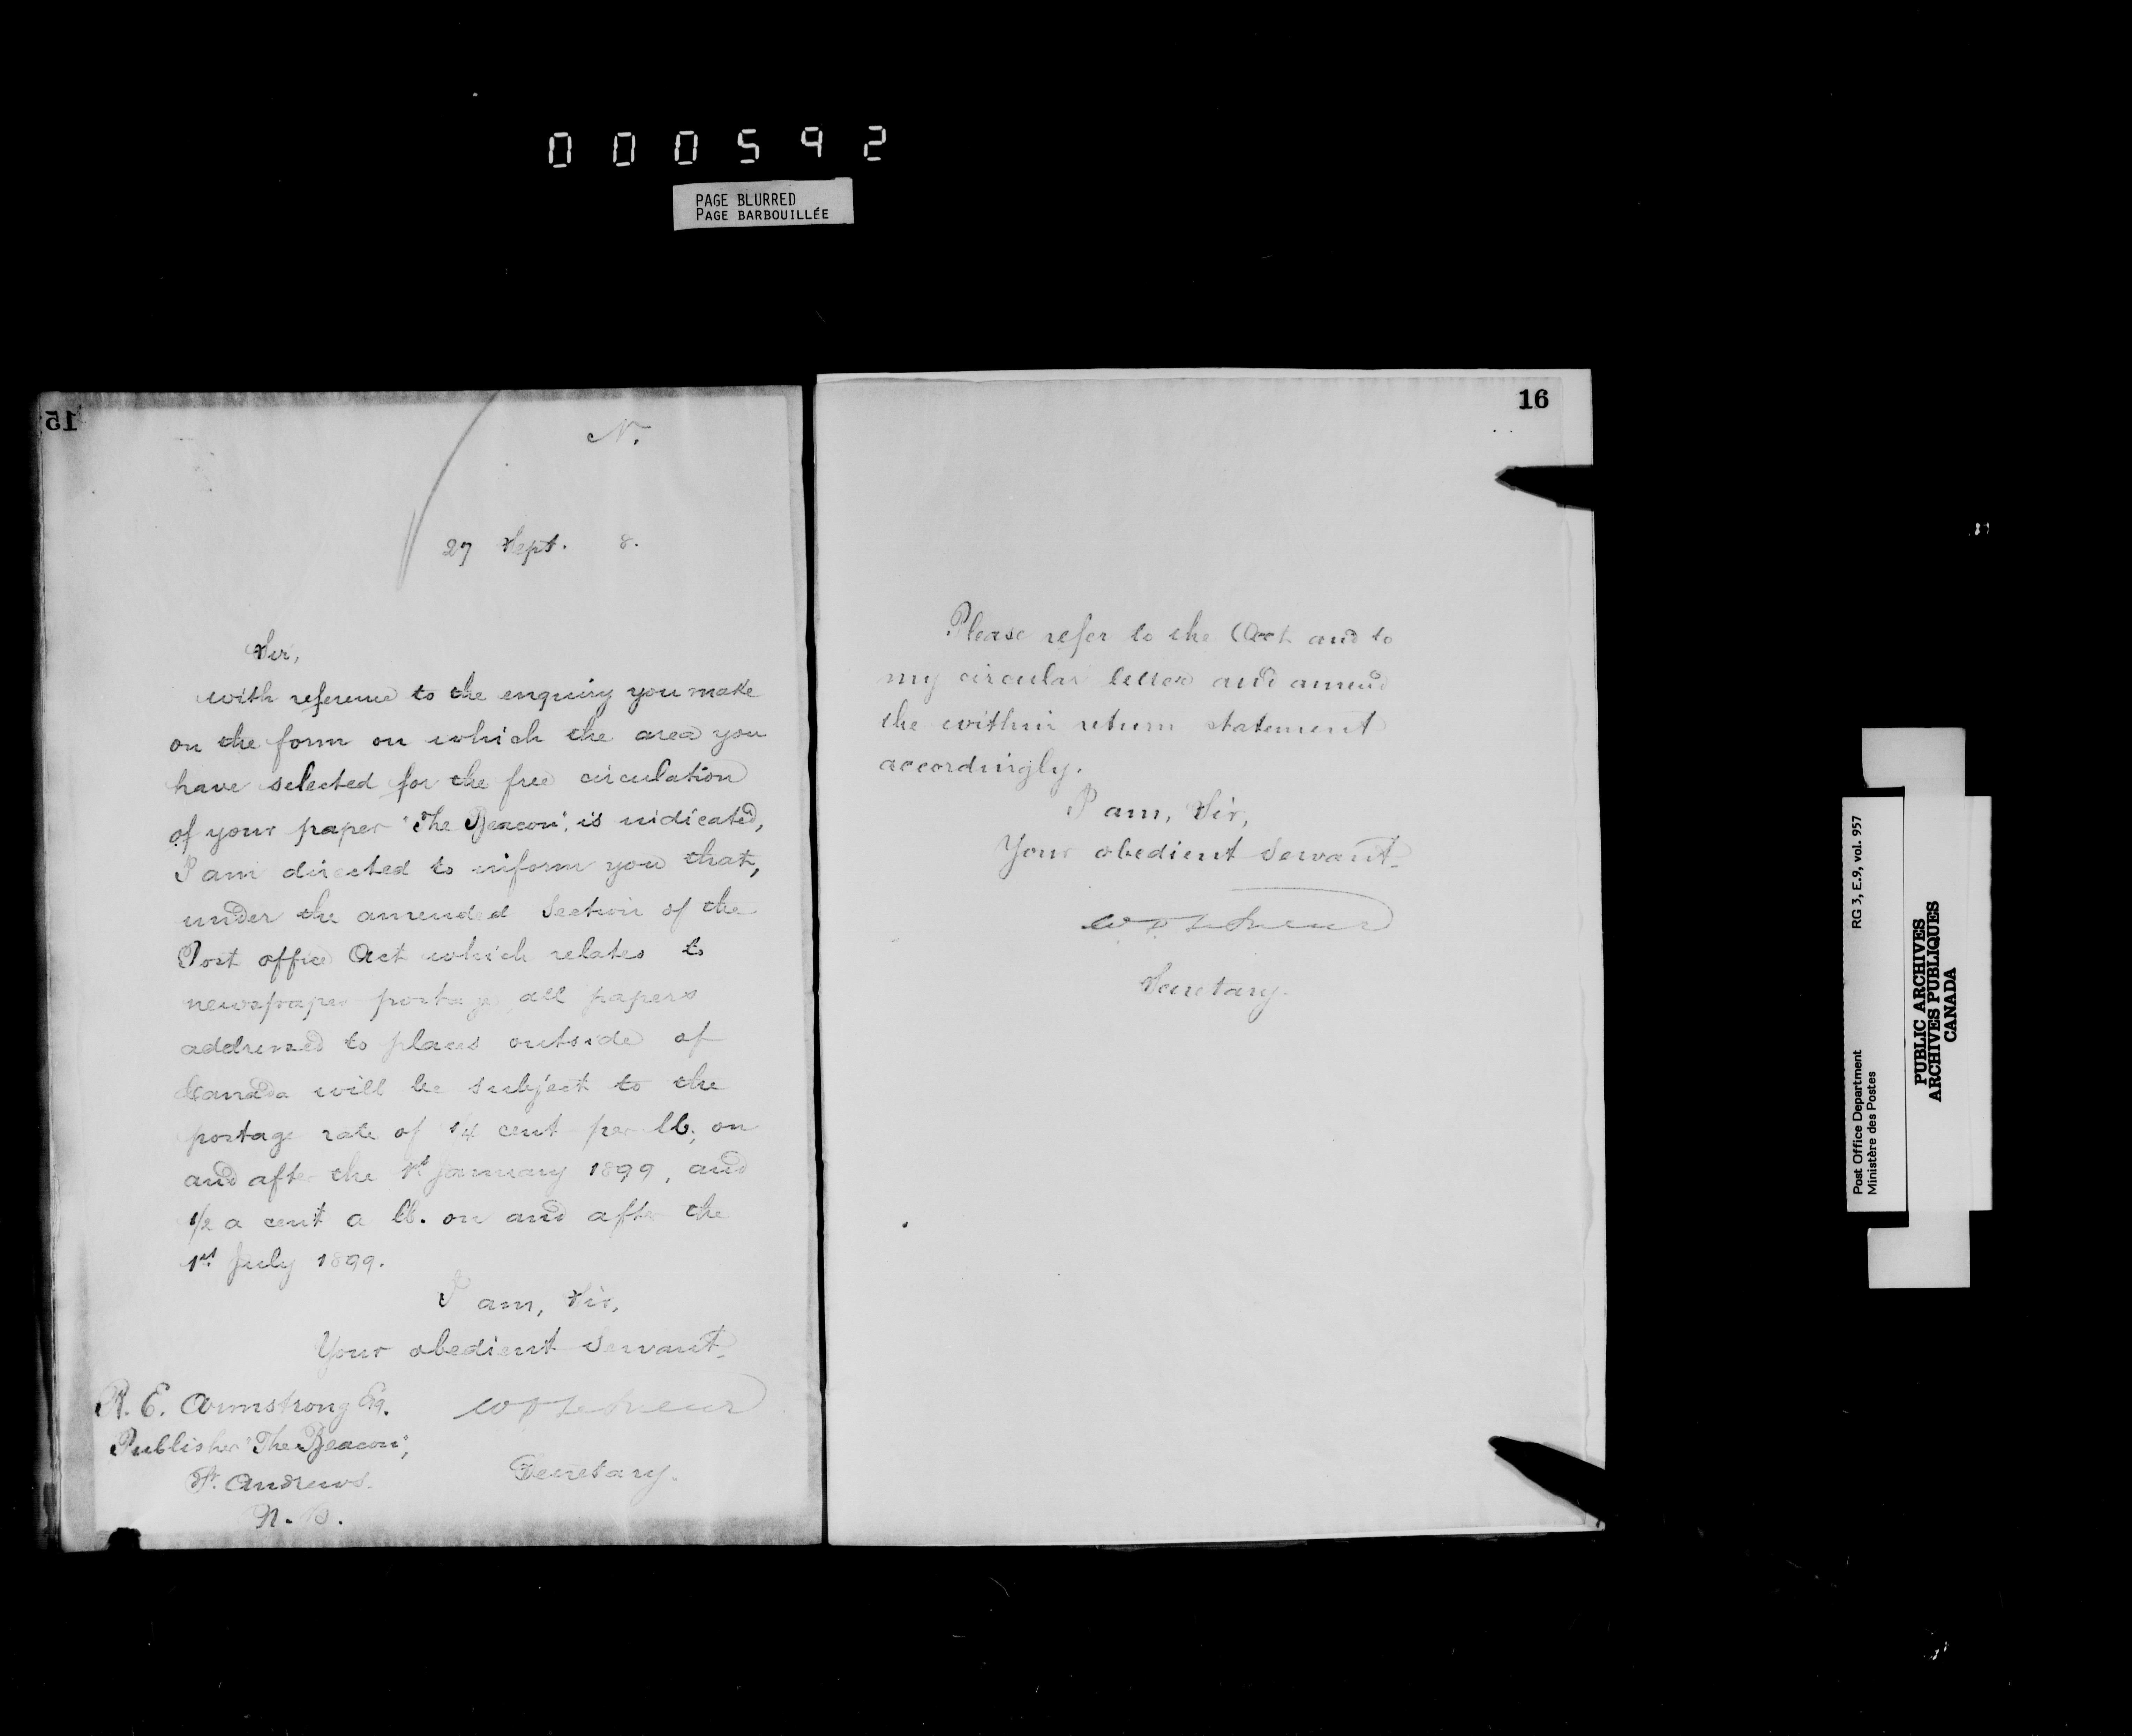 000592
PAGE BLURRED
PAGE BARBOUILLÉE
15
N.
27 Sept. 8.
Sir,
with reference to the enquiry you make
on the form on which the area you
have selected for the free circulation
of your paper "The Beacon", is indicated,
I am directed to inform you that,
under the amended Section of the
Post office Act which relates to
newspaper postage all papers
addressed to places outside of
Canada will be subject to the
postage rate of 1/4 cent per lb; on
and after the 1st January 1899, and
1/2 a cent a lb. on and after the
1st July 1899.
I am, Sir,
Your obedient Servant.
R. E. Armstrong Esq.
Publisher "The Beacon",
St. Andrews.
N. B.
Secretary.
16
Please refer to the Act and to
my circular letter and amend
the within return statement
accordingly.
I am, Sir,
Your obedient Servant.
Secretary.
Post Office Department
Ministère des Postes
RG 3, E.9, vol. 957
PUBLIC ARCHIVES
ARCHIVES PUBLIQUES
CANADA